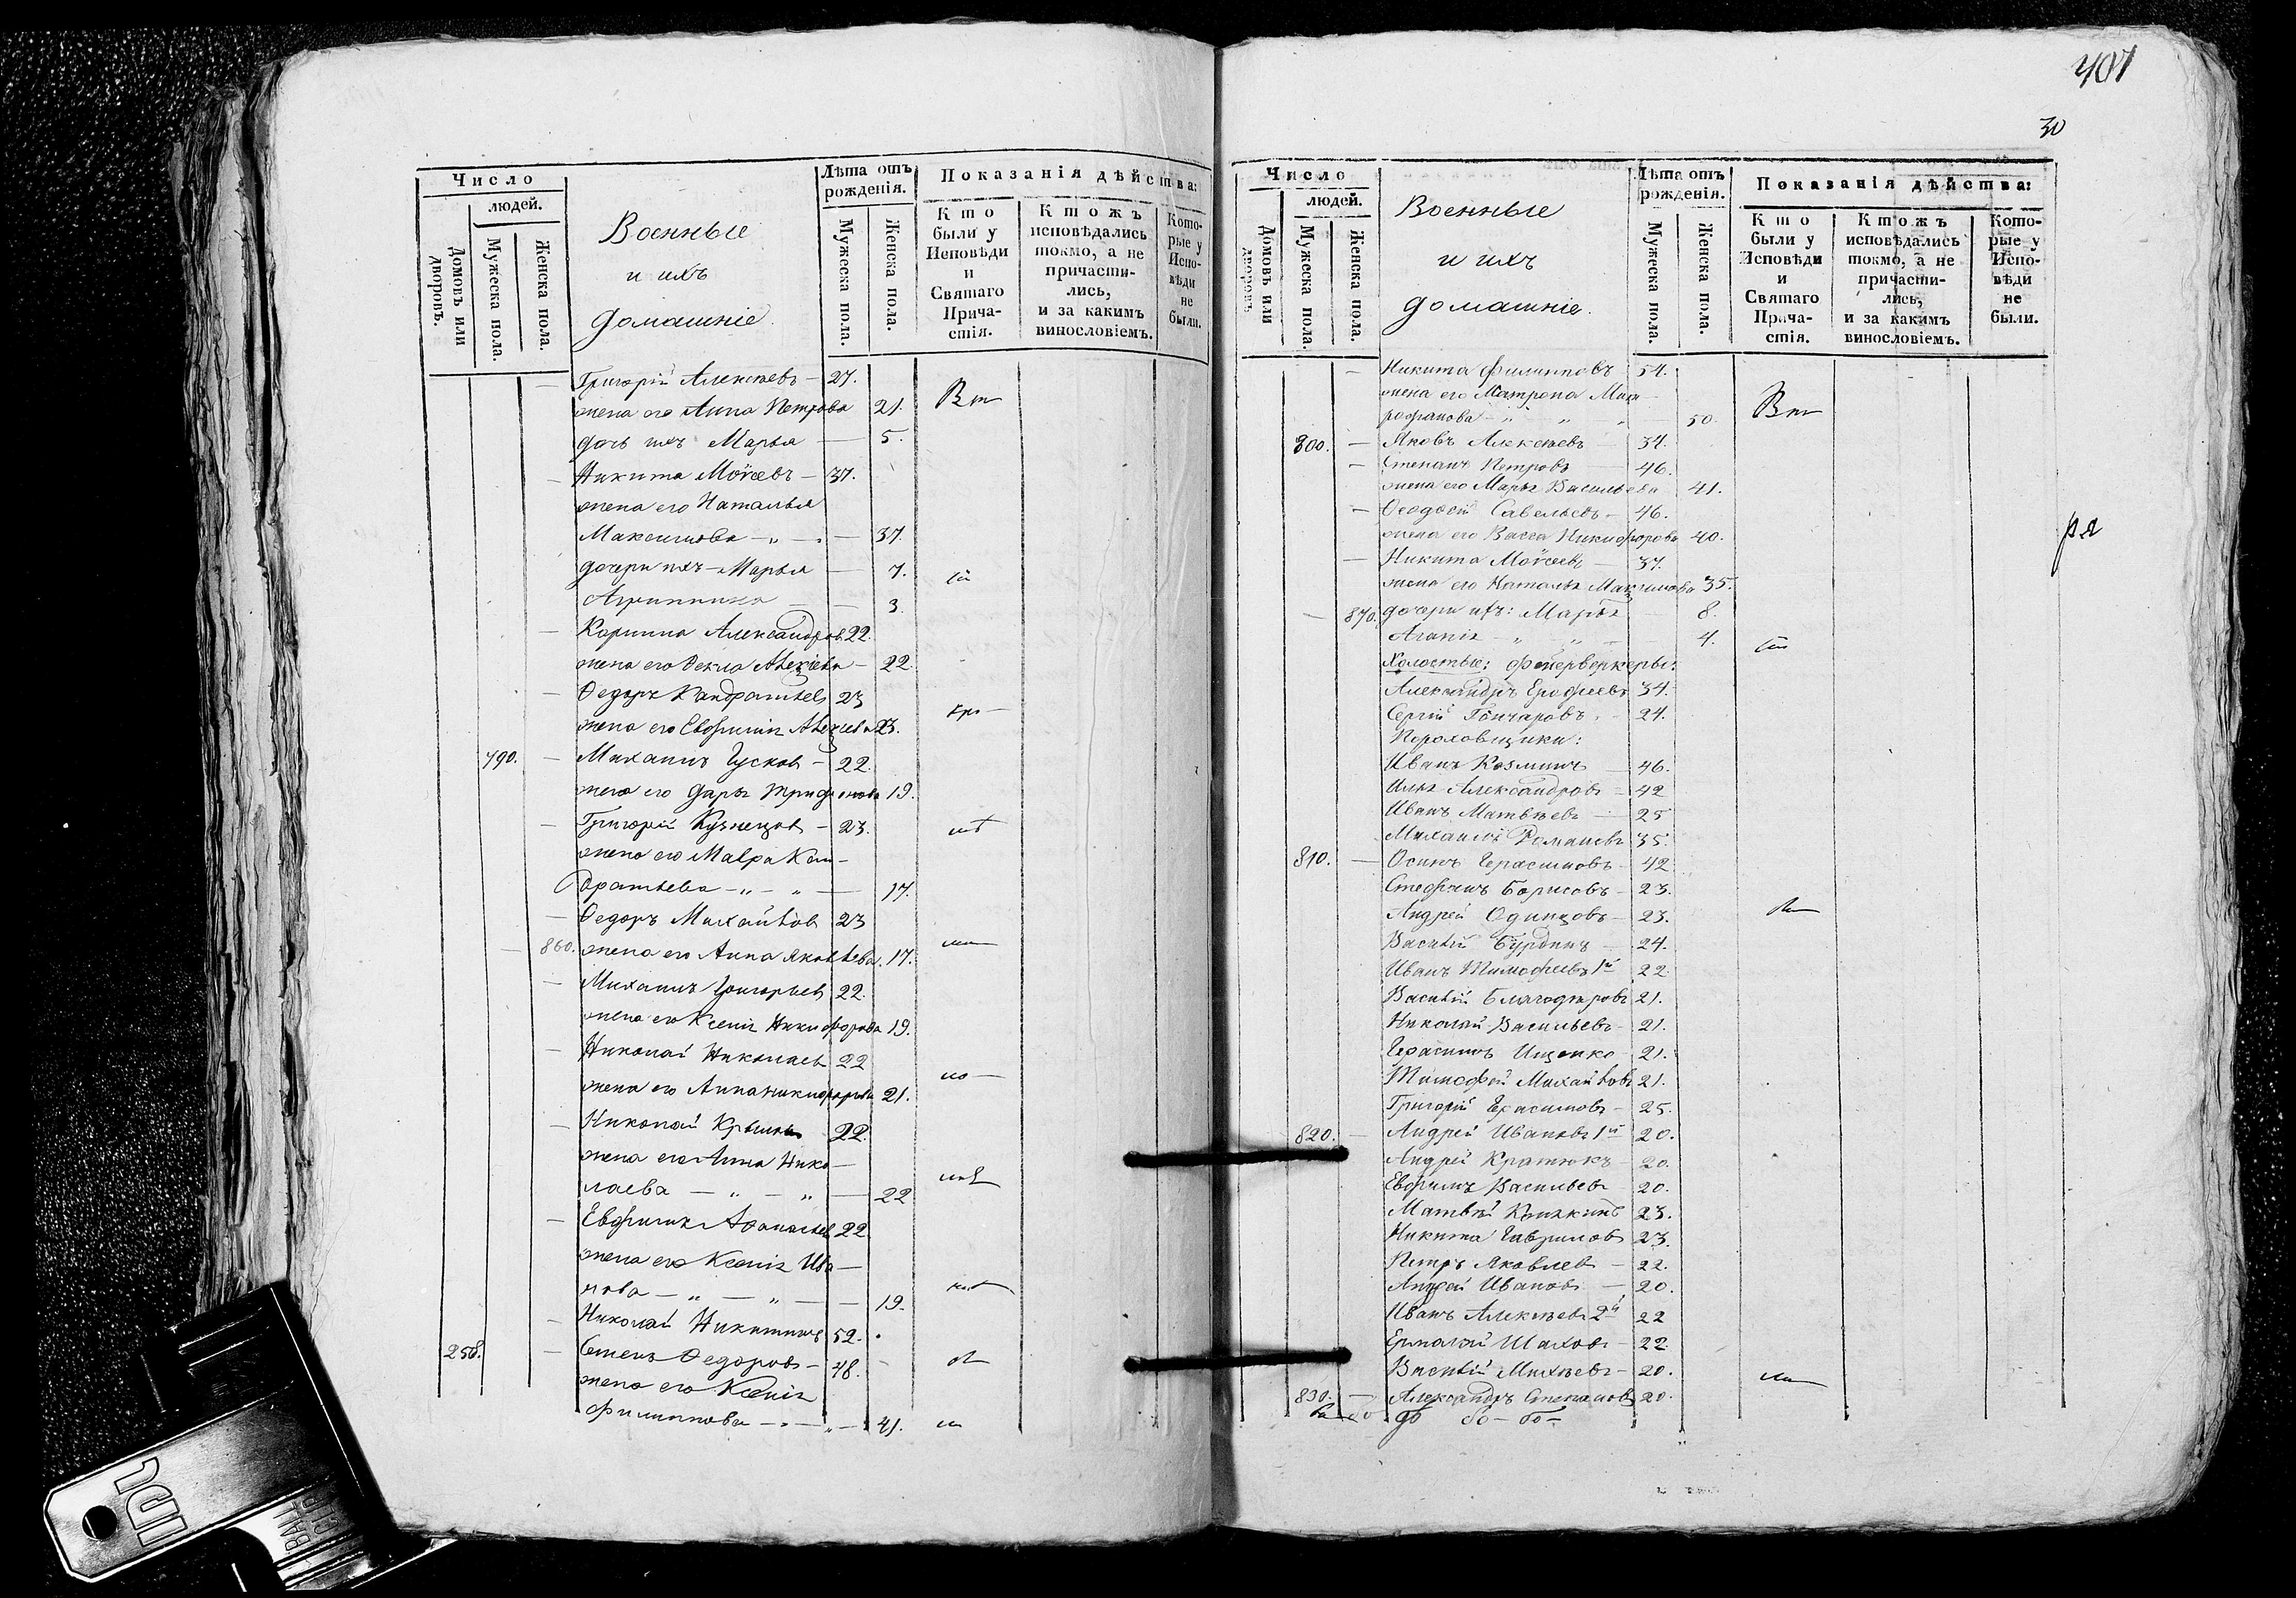 Число
людей.
Домовъ или дворовъ.
Мужеска пола.
Женска пола.
Военные
и ихъ
домашніе.
Лѣта отъ
рожденія.
Мужеска пола.
Женска пола.
Показанія дѣйства:
Кто
были у
Исповѣди
и
Святаго
Прича-
стія.
Ктожъ
исповѣдались
токмо, а не
причасти-
лись,
и за какимъ
винословіемъ.
Кото-
рые у
Испо-
вѣди
не
были.
— Григорій Алексѣевъ — 27.
жена его Анна Петрова 21.
дочь ихъ Марья — 5.
— Никита Моѵсеевъ — 37.
жена его Наталья
Максимова — „ — 37.
дочери ихъ — Марья — 7.
Агриппина — 3.
— Александровъ 22.
жена его Ѳекла — 22.
— Ѳедоръ Кандратьевъ 23
жена его Евфимія 23.
790. — Михаилъ Гусковъ — 22.
жена его Дарья Трифонова 19.
— Григорій Кузнецовъ — 23.
жена его Мавра Кан-
дратьева — „ — „ — 17.
— Ѳедоръ Михайловъ 23
— 860. жена его Анна Яковлева. 17.
— Михаилъ Григорьевъ 22.
жена его Ксенія Никифорова 19.
— Николай Николаевъ 22
жена его Анна Никифорова 21.
— Николай 22.
жена его Анна Нико-
лаева — „ — „ — 22
— Евфимій Афанасьевъ 22
жена его Ксенія Ива-
нова — „ — „ — 19.
— Николай Никитинъ 52.
258. — Ѳедоровъ — 48.
жена его Ксенія
Филиппова — „ — 41.
401
30
Число
людей.
Домовъ или дворовъ
Мужеска пола.
Женска пола.
Военные
и ихъ
домашніе.
Лѣта отъ
рожденія.
Мужеска пола.
Женска пола.
Показанія дѣйства:
Кто
были у
Исповѣди
и
Святаго
Прича-
стія.
Ктожъ
исповѣдались
токмо, а не
причасти-
лись,
и за какимъ
винословіемъ.
Кото-
рые у
Испо-
вѣди
не
были.
— Никита Филипповъ 54.
жена его Матрона Мит
рофанова — „ „ 50.
800. — Яковъ Алексѣевъ — 34.
— Степанъ Петровъ — 46.
жена его Марья Васильева 41.
— Ѳеодосій Савельевъ — 46.
жена его Васса Никифорова 40.
— Никита Моѵсеевъ — 37.
жена его Наталья Максимова 35.
— 870. дочери ихъ: Марья 8.
Агапія — „ „ — 4.
Холостые: фейерверкеры:
Александръ Ерофеевъ 34.
Сергій Гончаровъ. — 24.
Пороховщики:
Иванъ Козминъ — 46.
Илья Александровъ — 42
Иванъ Матвѣевъ — 25
Михаилъ Романовъ 35.
810. — Осипъ Герасимовъ — 42
Стефанъ Борисовъ — 23.
Андрей Одинцовъ — 23.
Василій Бурдинъ — 24.
Иванъ Тимофеевъ 1й 22.
Василій Благодаровъ 21.
Николай Васильевъ — 21.
Герасимъ Ищенко — 21.
Тимофей Михайловъ 21.
Григорій Герасимовъ — 25.
820. — Андрей Ивановъ 1й 20.
Андрей — 20.
Евфимъ Васильевъ — 20.
Матвѣй 23.
Никита Гавриловъ 23.
Петръ Яковлевъ — 22.
Андрей Ивановъ — 20.
Иванъ Алексѣевъ 2й 22
Ермолай Шаховъ — 22.
Василій Михѣевъ — 20.
830. — Александръ Степановъ 20.
ря